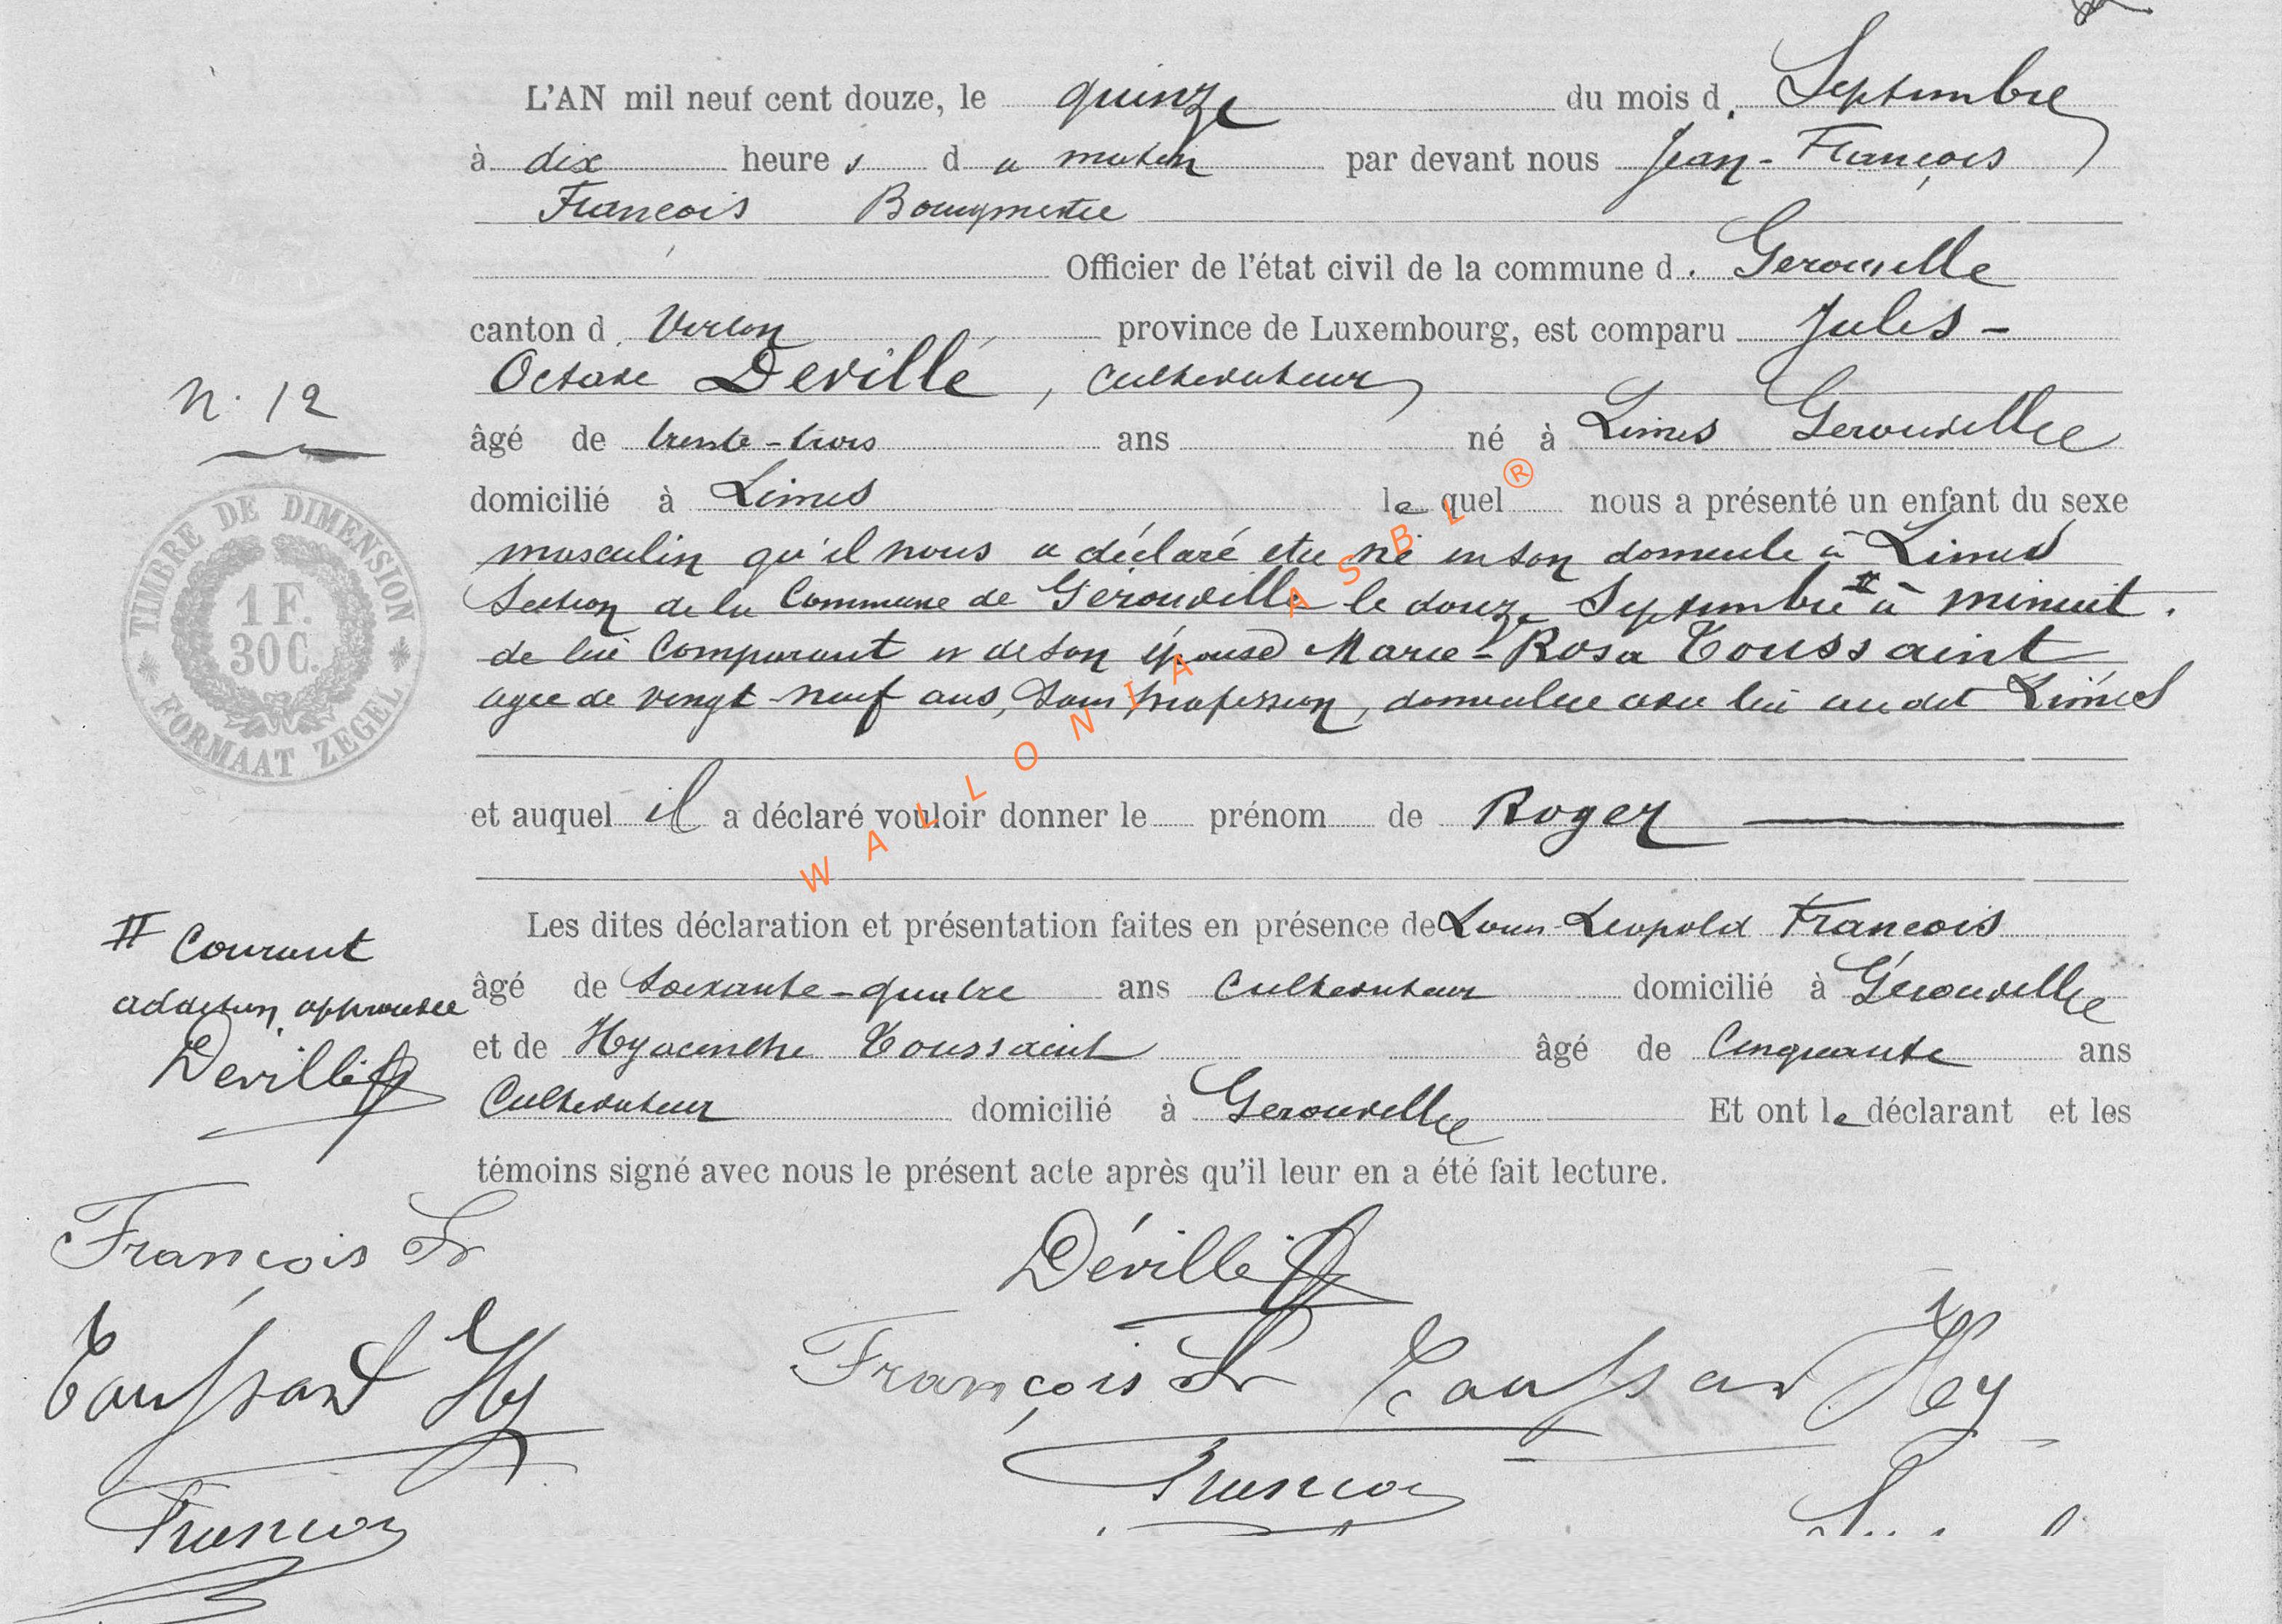 L'AN mil neuf cent douze, le quinze du mois d. Septembre
à dix heure s d u matin par devant nous Jean-François
François Bourgmestre
Officier de l'état civil de la commune d. Gerouville
canton d. Virton province de Luxembourg, est comparu Jules-
Octave Deville, cultivateur
N. 12
âgé de trente-trois ans né à Limes Gerouville
domicilié à Limes le quel nous a présenté un enfant du sexe
masculin qu'il nous a déclaré etre né en son domicile à Limes
Section de la Commune de Gérouville le douze Septembre # à minuit.
de lui Comparant et de son épouse Marie-Rosa Toussaint
agée de vingt-neuf ans, Sans profession, domiciliée avec lui au dit Limes
et auquel il a déclaré vouloir donner le prénom de Roger
Les dites déclaration et présentation faites en présence de Louis-Leopold Francois
âgé de Soixante-quatre ans Cultivateur domicilié à Gérouville
et de Hyacinthe Toussaint âgé de Cinquante ans
Cultivateur domicilié à Gerouville Et ont le déclarant et les
témoins signé avec nous le présent acte après qu'il leur en a été fait lecture.
# Courant
addition approuvée
Deville
François
Toussaint Hy
Francois
Déville
François Toussaint Hy
Francois
TIMBRE DE DIMENSION
1 F.
30 C.
FORMAAT ZEGEL
WALLONIA ASBL ®